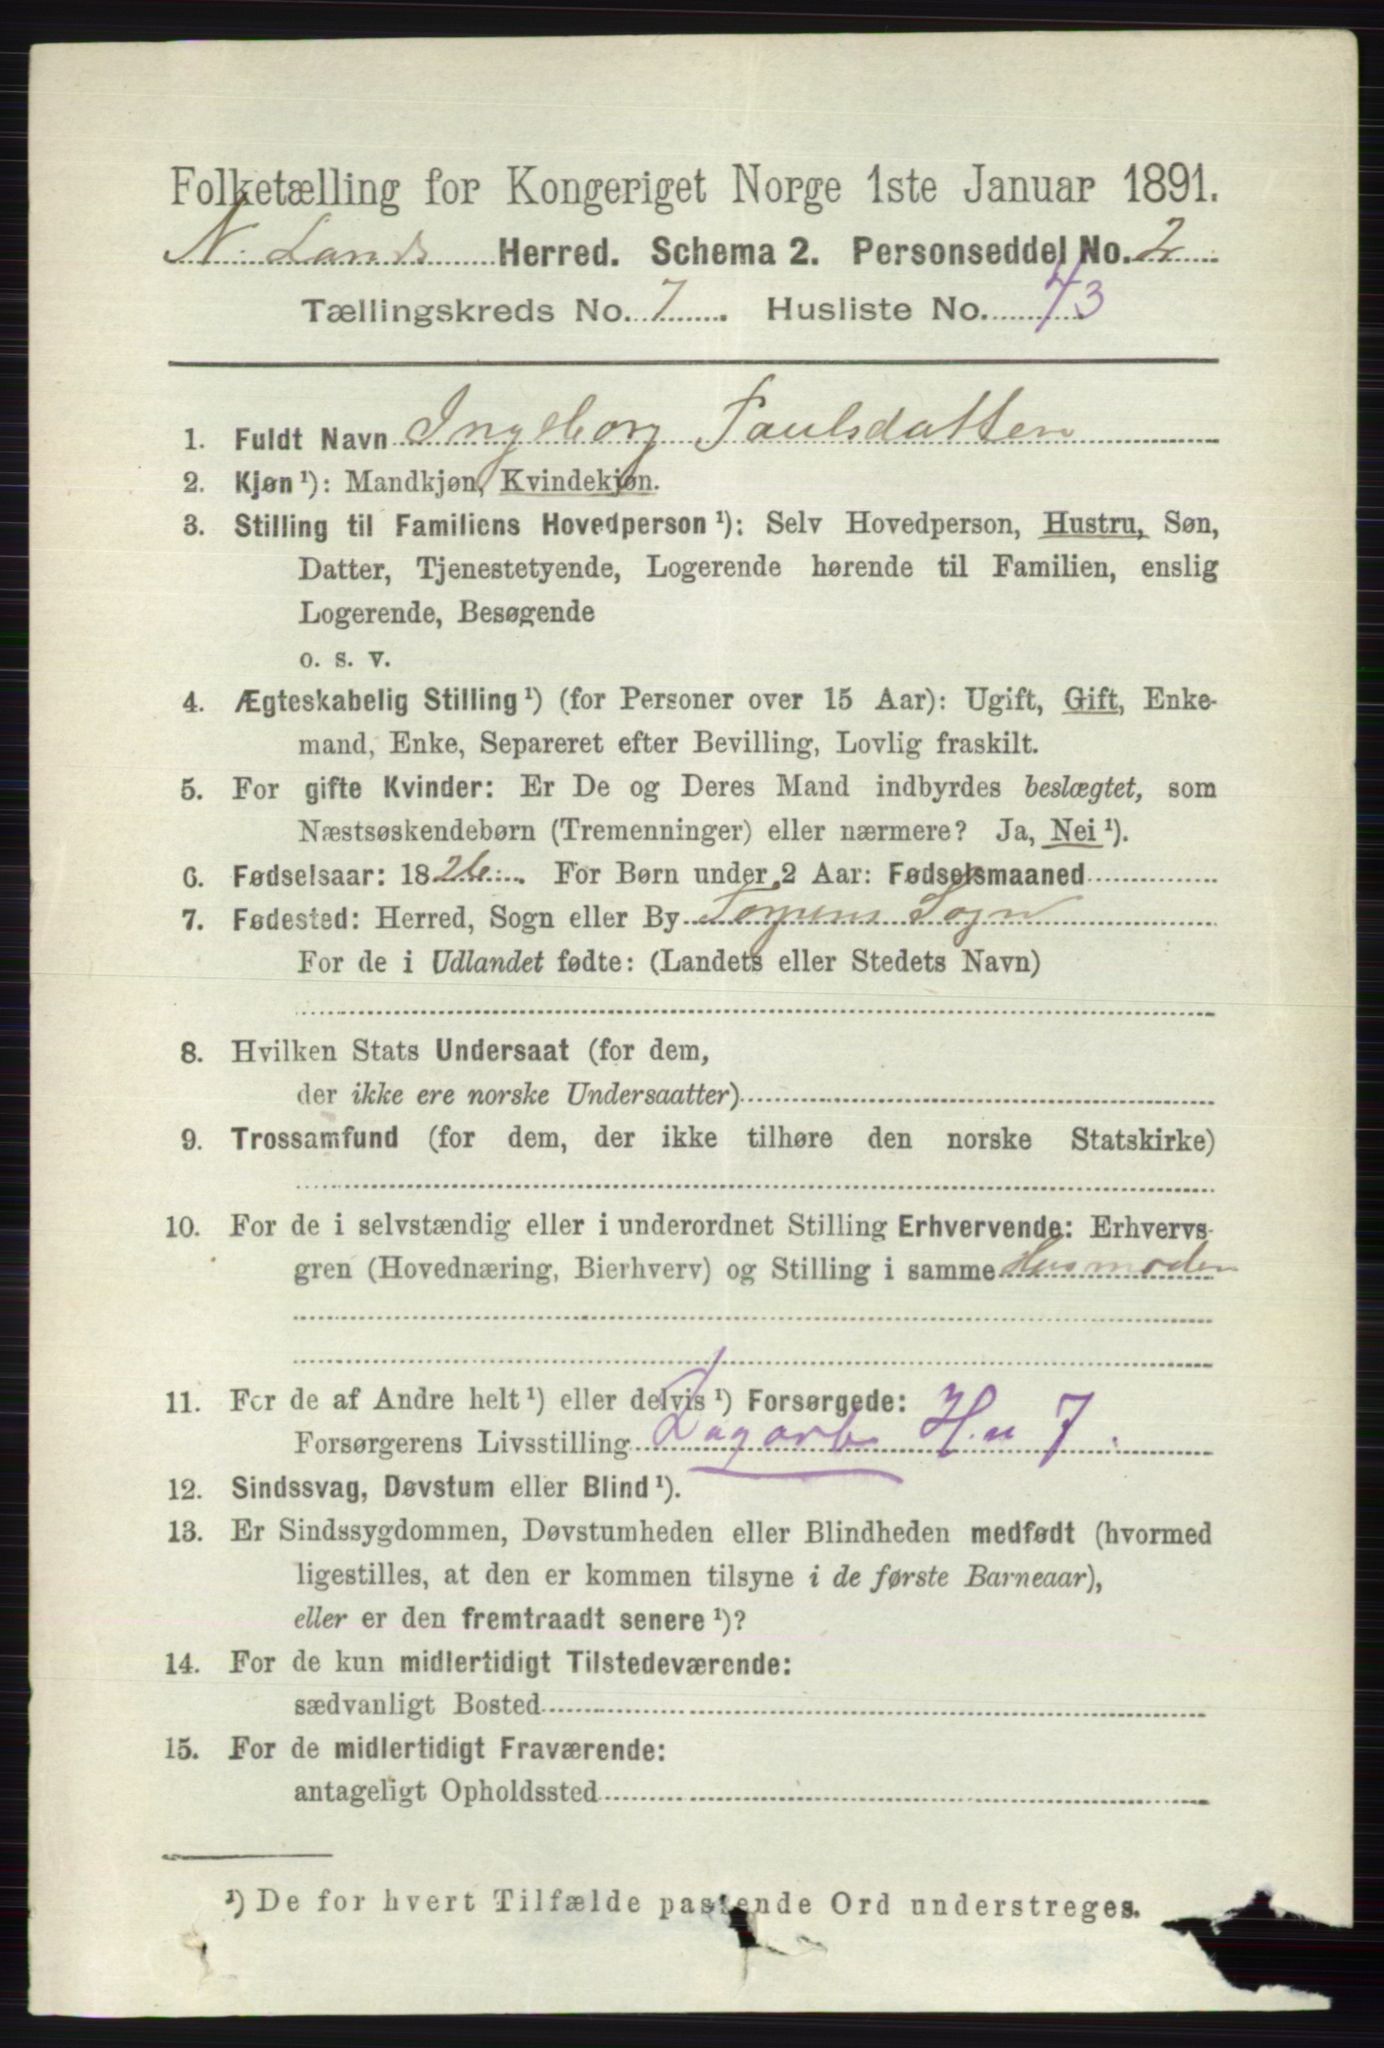 Folketælling for Kongeriget Norge 1ste Januar 1891.
N. Lands Herred. Schema 2. Personseddel No. 2
Tællingskreds No. 7. Husliste No. 73
1. Fuldt Navn Ingeborg Paulsdatter
2. Kjøn ¹): Mandkjøn, Kvindekjøn.
3. Stilling til Familiens Hovedperson ¹): Selv Hovedperson, Hustru, Søn,
Datter, Tjenestetyende, Logerende hørende til Familien, enslig
Logerende, Besøgende
o. s. v.
4. Ægteskabelig Stilling ¹) (for Personer over 15 Aar): Ugift, Gift, Enke-
mand, Enke, Separeret efter Bevilling, Lovlig fraskilt.
5. For gifte Kvinder: Er De og Deres Mand indbyrdes beslægtet, som
Næstsøskendebørn (Tremenninger) eller nærmere? Ja, Nei ¹).
6. Fødselsaar: 1826. For Børn under 2 Aar: Fødselsmaaned
7. Fødested: Herred, Sogn eller By Torpens Sogn
For de i Udlandet fødte: (Landets eller Stedets Navn)
8. Hvilken Stats Undersaat (for dem,
der ikke ere norske Undersaatter)
9. Trossamfund (for dem, der ikke tilhøre den norske Statskirke)
10. For de i selvstændig eller i underordnet Stilling Erhvervende: Erhvervs-
gren (Hovednæring, Bierhverv) og Stilling i samme Husmoder
11. For de af Andre helt ¹) eller delvis ¹) Forsørgede:
Forsørgerens Livsstilling Dagarb H. u 7.
12. Sindssvag, Døvstum eller Blind ¹).
13. Er Sindssygdommen, Døvstumheden eller Blindheden medfødt (hvormed
ligestilles, at den er kommen tilsyne i de første Barneaar),
eller er den fremtraadt senere ¹)?
14. For de kun midlertidigt Tilstedeværende:
sædvanligt Bosted
15. For de midlertidigt Fraværende:
antageligt Opholdssted
¹) De for hvert Tilfælde passende Ord understreges.